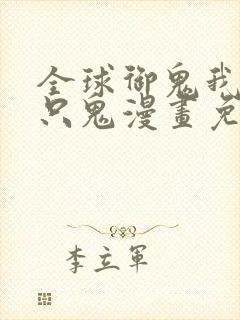 全球御鬼我
只鬼漫畫免
李立軍